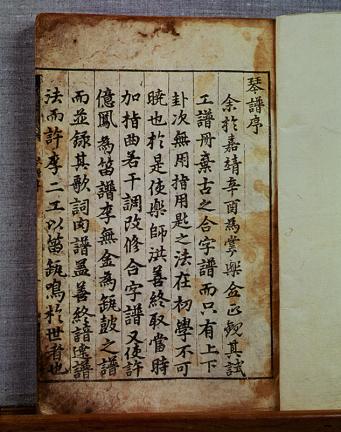 琴譜序
余於嘉靖辛酉為掌樂僉正觀其試
工譜冊棄古之合字譜而只有上下
卦次無用指用匙之法在初學不可
曉也於是使樂師洪善終取當時
加指曲若干調改修合字譜又使許
億鳳為笛譜李無金為缻鼓之譜
而並錄其歌詞肉譜盖善終諳達譜
法而許李二工以笛缻鳴於世者也